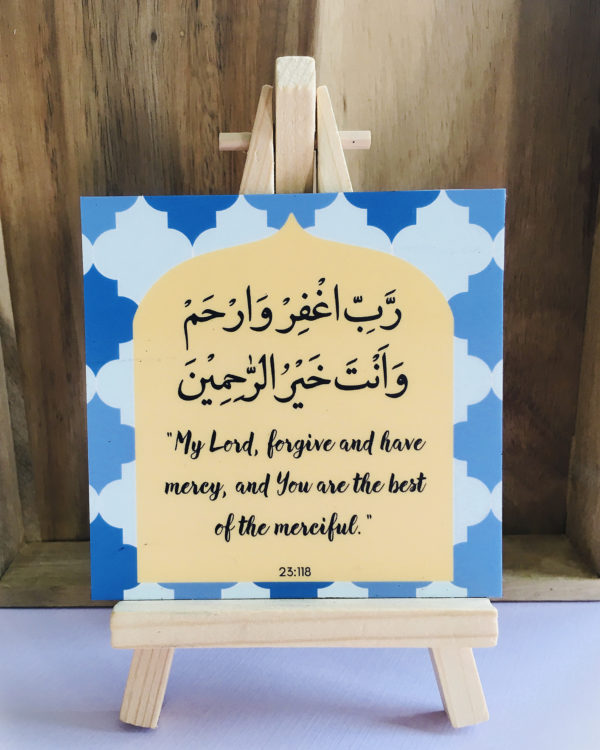 رَّبِّ اغْفِرْ وَارْحَمْ
وَاَنْتَ خَيْرُ الرّٰحِمِيْنَ
"My Lord, forgive and have
mercy, and You are the best
of the merciful."
23:118